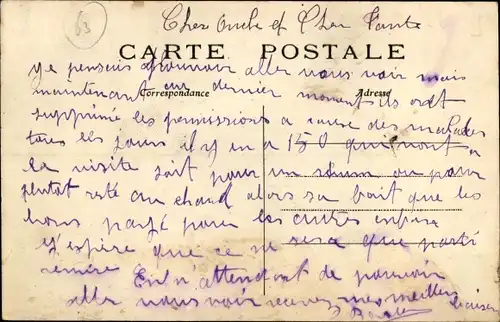 63
Cher Oncle et Cher Tante
CARTE POSTALE
ye pensais pouvoir aller vous voir mais
maintenant au dernier moment ils ont
Correspondance Adresse
supprimé les permissions a cause des malades
tous les jours il y en a 150 qui vont a
la visite soit pour un rhum ou pour
plutot resté au chaud alors sa fait que les
bons paye pour les autres enfin
J'espère que ce ne sera que parti
remise En n'attendant de pouvoir
aller vous voir recevez mes meilleurs
baisers